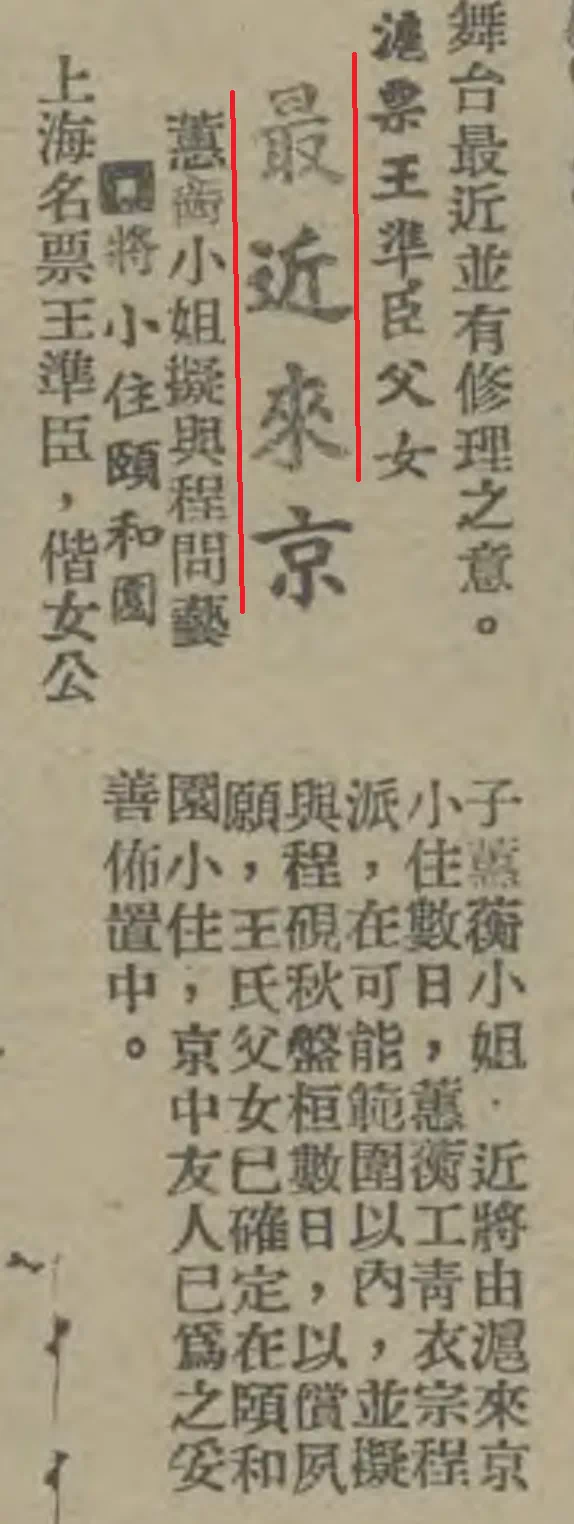 舞台最近並有修理之意。
滬票王準臣父女
最近來京
蕙蘅小姐擬與程問藝
將小住頤和園
上海名票王準臣，偕女公
子蕙蘅小姐．近將由滬來京
小住數日，蕙蘅工青衣宗程
派，在可能範圍以內，並擬
與程硯秋盤桓數日，以償夙
願，王氏父女已確定在頤和
園小住，京中友人已爲之妥
善佈置中。